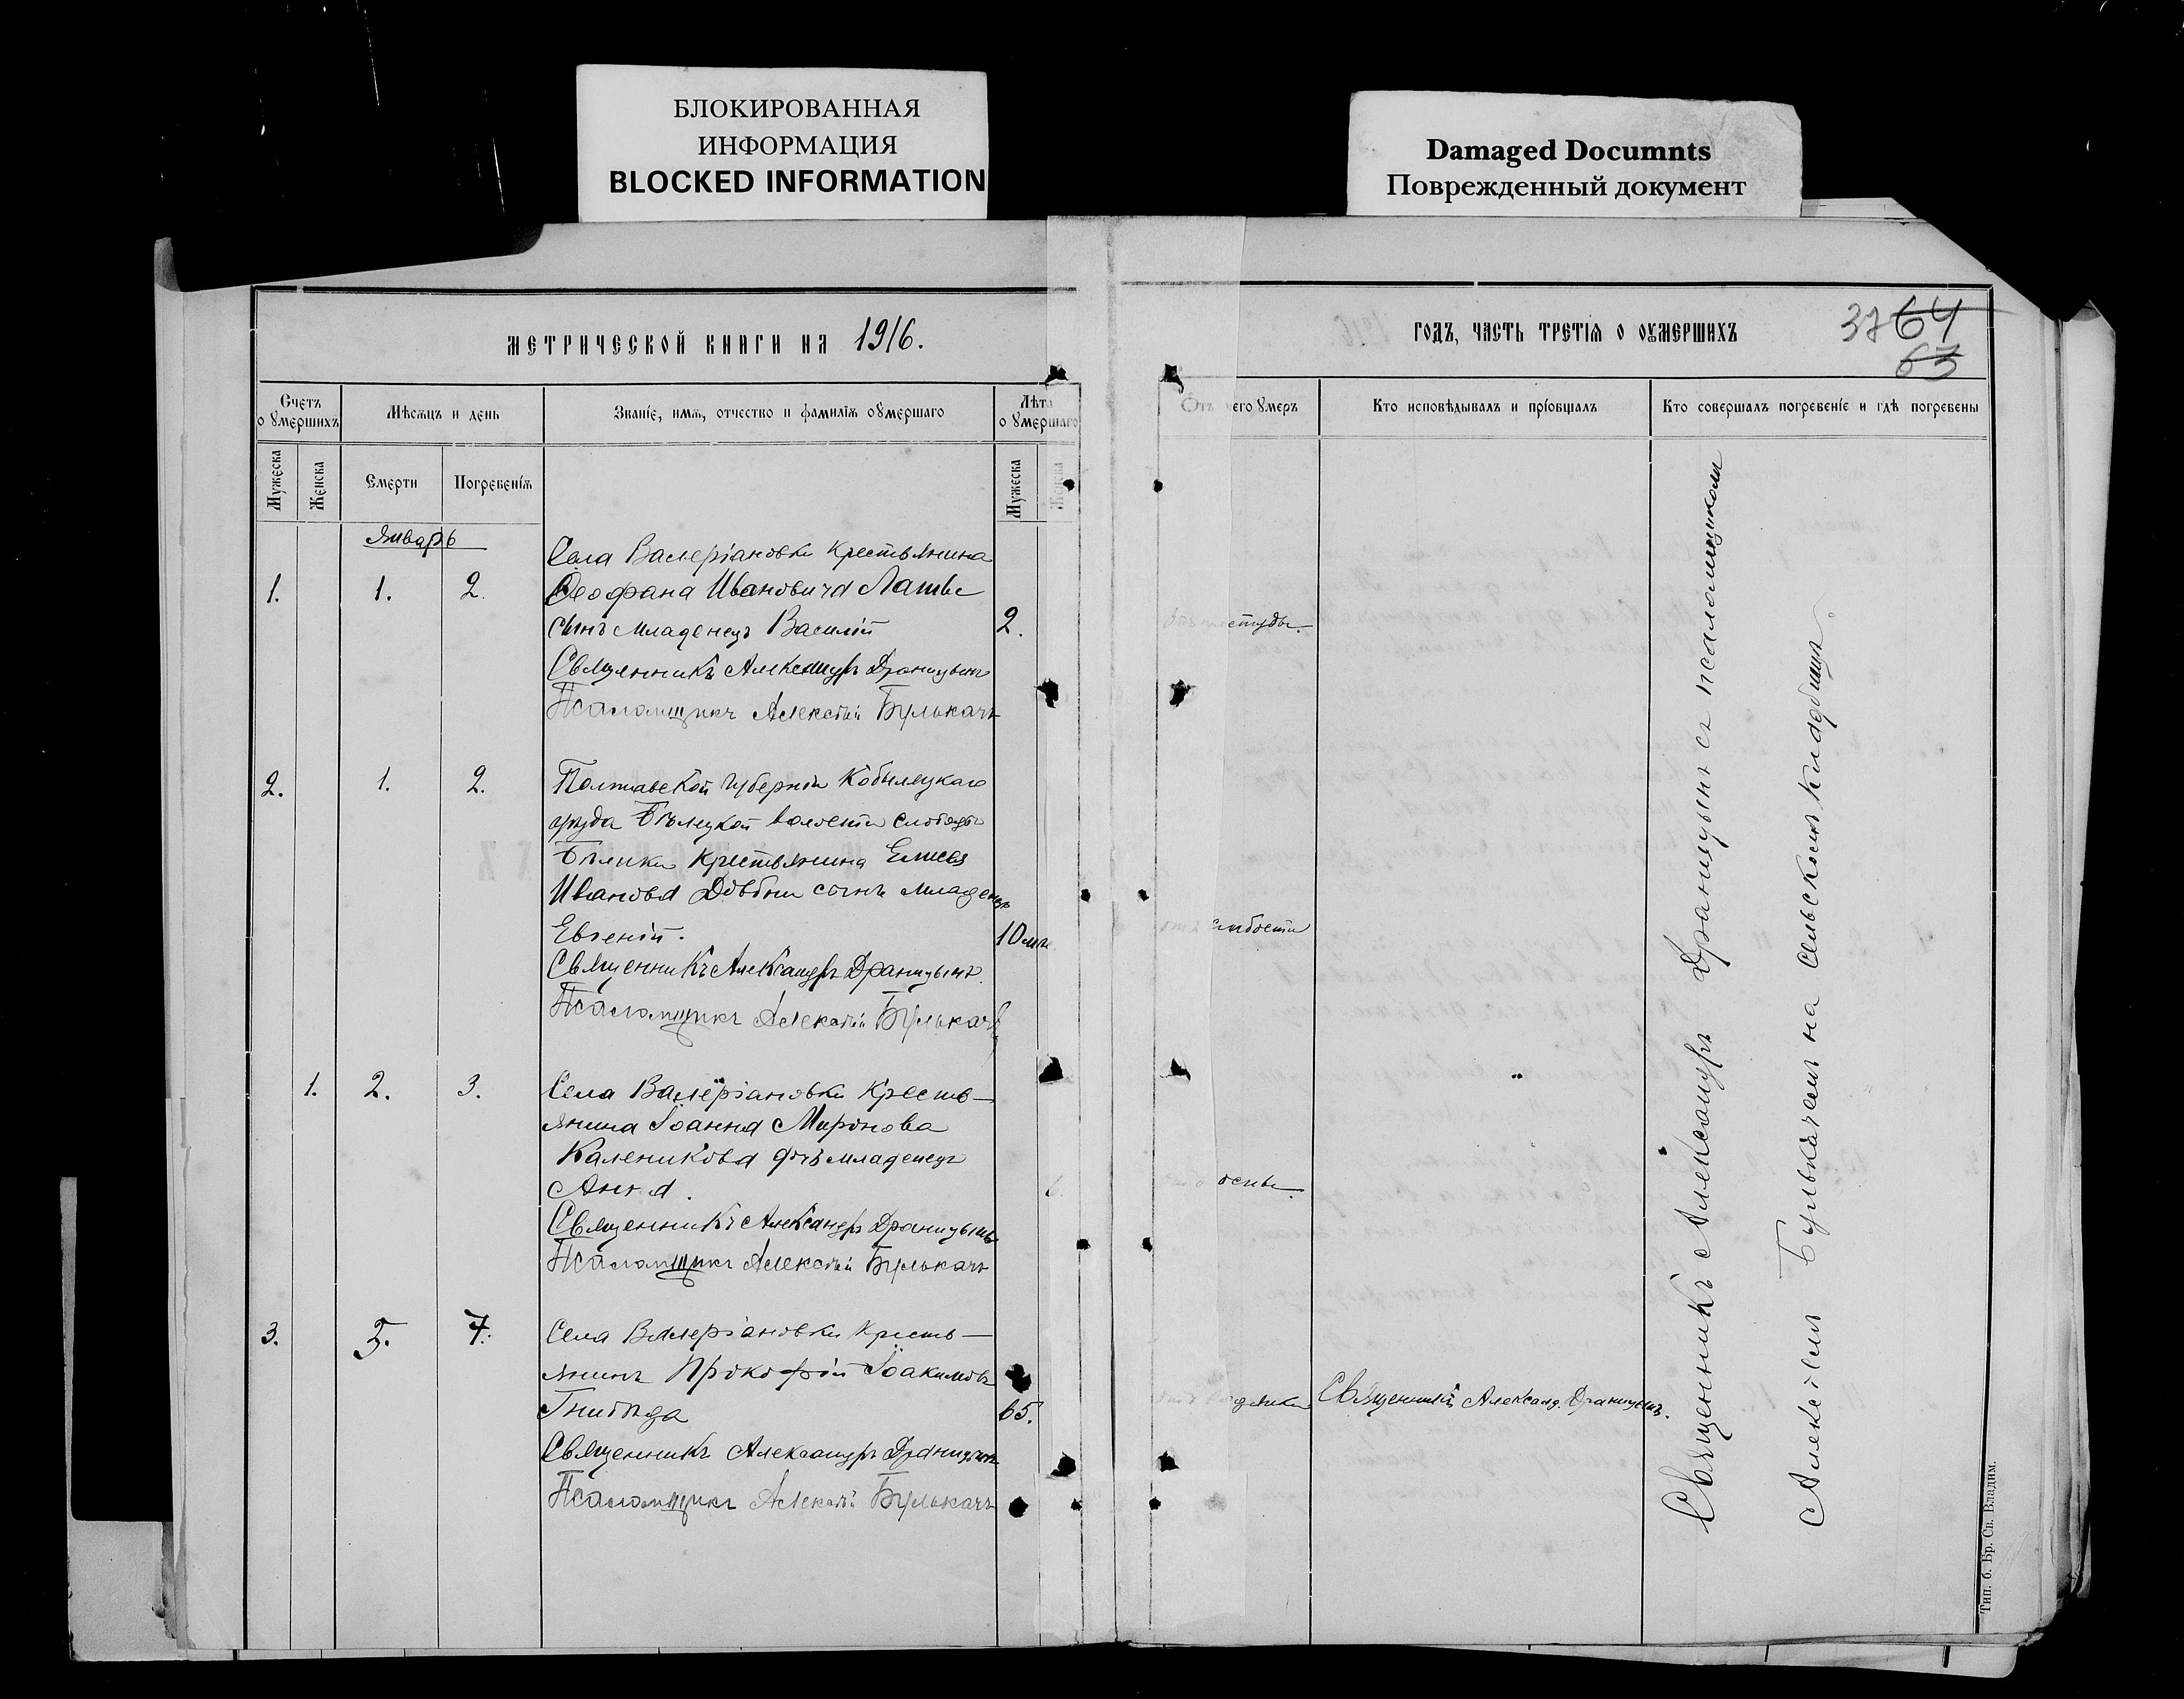 БЛОКИРОВАННАЯ
ИНФОРМАЦИЯ
BLOCKED INFORMATION
Damaged Documnts
Поврежденный документ
МЕТРИЧЕСКОЙ КНИГИ НА 1916.
ГОДЪ, ЧАСТЬ ТРЕТІЯ О ОУМЕРШИХЪ
37 64
63
Счетъ оумершихъ
Мѣсяцъ и день
Званіе, имя, отчество и фамилія оумершаго
Лѣта оумершаго
Отъ чего умеръ
Кто исповѣдывалъ и пріобщалъ
Кто совершалъ погребеніе и гдѣ погребены
Мужеска
Женска
Смерти
Погребенія
Мужеска
Женска
Январь
Села Валеріановки крестьянина
1. 1. 2. Ѳеофана Ивановича Латы
сынъ младенецъ Василій 2. отъ простуды.
Священникъ Александръ Драницынъ
Псаломщикъ Алексѣй Булькачъ
2. 1. 2. Полтавской губерніи Кобеляцкаго
уѣзда Бѣлецкой волости слободы
Бѣлики крестьянина Елисея
Иванова Довбни сынъ младенецъ
Евгеній. 10 мѣ. отъ слабости
Священникъ Александръ Драницынъ
Псаломщикъ Алексѣй Булькачъ
1. 2. 3. Села Валеріановки кресть-
янина Іоанна Миронова
Каленикова дочь младенецъ
Анна. 6. оспы.
Священникъ Александръ Драницынъ
Псаломщикъ Алексѣй Булькачъ
3. 5. 7. Села Валеріановки кресть-
янинъ Прокофій Іоакимовъ
Гнибѣда 65. отъ водянки Священникъ Александ. Драницынъ.
Священникъ Александръ Драницынъ
Псаломщикъ Алексѣй Булькачъ
Священникъ Александръ Драницынъ съ псаломщикомъ
Алексѣемъ Булькачемъ на сельскомъ кладбищѣ.
Тип. б. Бр. Св. Владим.